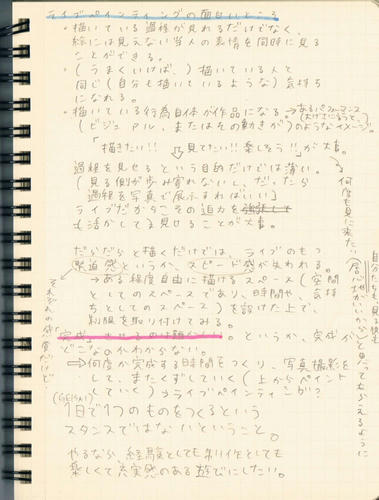 ライブペインティングの面白いところ
・描いている過程が見れるだけでなく、
絵には見えない当人の表情を同時に見る
ことができる。
・(うまくいけば、)描いている人と
同じ(自分も描いているような)気持ち
になれる。
・描いている行為自体が作品になる。
(ビジュアル、またはその動きが)
→あるパフォーマンス
(大げさにいうと、)
のようなイメージ。
「描きたい!! 見てたい!! 楽しそう!!」が大事。
過程を見せるという目的だけでは薄い。
(見る側が歩み寄れないし、だったら
過程を写真で展示すればいい)
ライブだからこその迫力を
も活かしてま見せることが大事。
だらだらと描くだけでは、ライブのもつ
緊迫感というか、スピード感が失われる。
→ある程度自由に描けるスペース(空間
としてのスペースであり、時間や、気持
ちとしてのスペース)を設けた上で、
制限を取り付けてみる。
「完成」というか、完成が
どこなのかわからない。
⇒何度か完成する時間をつくり、写真撮影を
して、またくずしていく(上からペイント
していく)ライブペインティング?
(GEISAI)
1日で1つのものをつくるという
スタンスではないということ。
やるなら、経験としても制作としても
楽しくて充実感のある遊びにしたい。
何度も見に来たい
自分たちも、見る側も
(居心地がいいから)と思ってもらえるように
それぞれの感度だけど